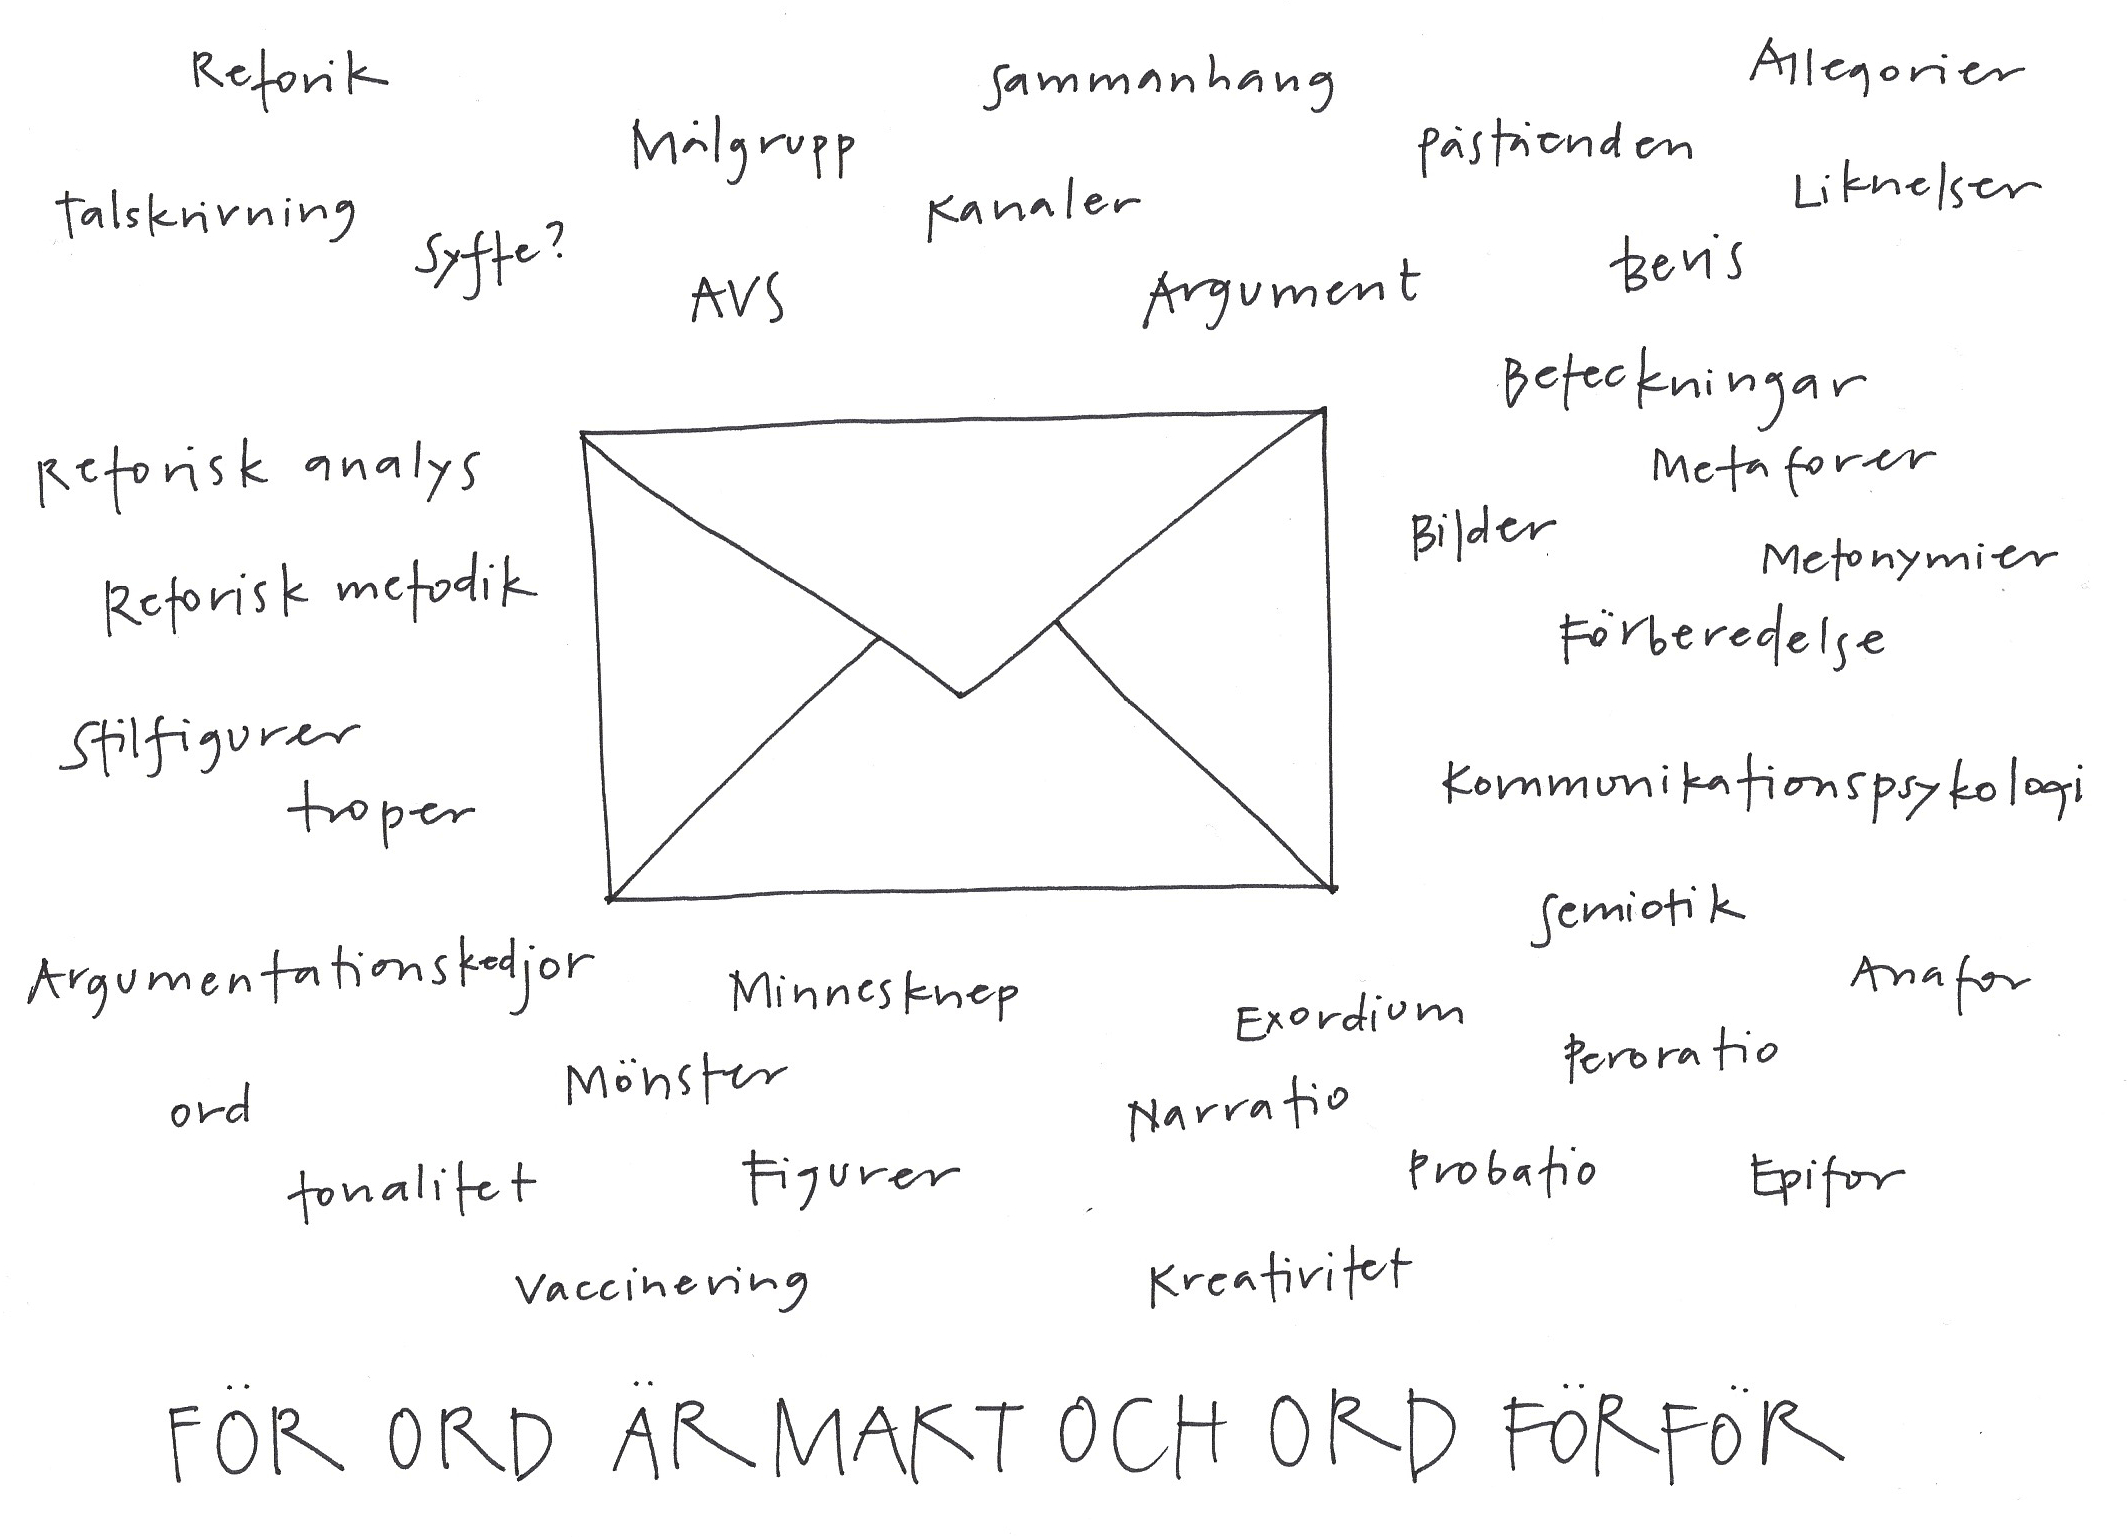 Retorik
Sammanhang
Allegorier
Målgrupp
påståenden
Liknelser
talskrivning
Kanaler
Syfte?
Bevis
AVS
Argument
Beteckningar
Retorisk analys
Metaforer
Bilder
Metonymier
Retorisk metodik
Förberedelse
Stilfigurer
troper
Kommunikationspsykologi
Semiotik
Argumentationskedjor
Minnesknep
Anafor
Exordium
Peroratio
Mönster
ord
Narratio
tonalitet
Figurer
Probatio
Epifor
Vaccinering
Kreativitet
FÖR ORD ÄR MAKT OCH ORD FÖRFÖR